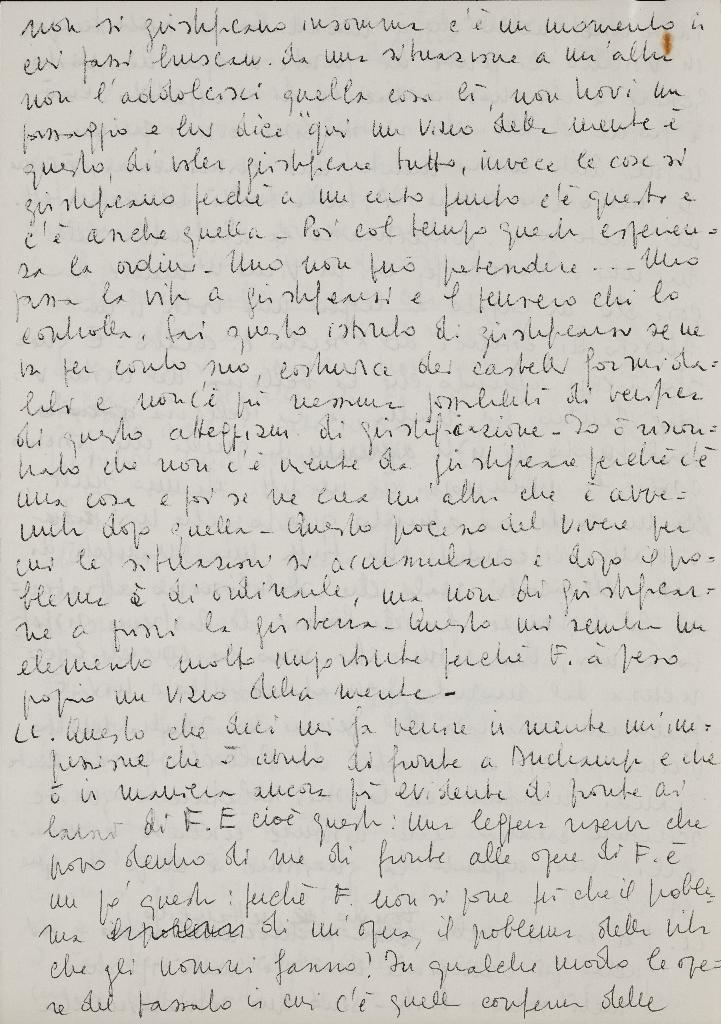 non si giustificano insomma c'è un momento in
cui passi bruscam. da una situazione a un'altra
non l'addolcisci quella cosa lì, non trovi un
passaggio e lui dice "qui un vizio della mente è
questo, di voler giustificare tutto, invece le cose si
giustificano perché a un certo punto c'è questo e
c'è anche quella - Poi col tempo questa esperien-
za la ordini - Uno non può pretendere ... Uno
passa la vita a giustificarsi e il pensiero chi lo
controlla, fai questo istinto di giustificarsi se ne
va per conto suo, costruisce dei castelli formida-
bili e non c'è più nessuna possibilità di verifica
di questo atteggiam. di giustificazione - Io ò riscon-
trato che non c'è niente da giustificare perché c'è
una cosa e poi se ne crea un'altra che è avve-
nuta dopo quella - Questo processo del vivere per
cui le situazioni si accumulano e dopo il pro-
blema è di ordinarle, ma non di giustificar-
ne a priori la giustezza - Questo mi sembra un
elemento molto importante perché F. à preso
proprio un vizio della mente -
Questo che dici mi fa venire in mente un'im-
pressione che ò avuto di fronte a Duchamp e che
ò in maniera ancora più evidente di fronte ai
lavori di F. E cioè questa: Una leggera riserva che
provo dentro di me di fronte alle opere di F. è
un po' questa: perché F. non si pone più che il proble-
ma di un'opera, il problema della vita
che gli uomini fanno? In qualche modo le ope-
re del passato in cui c'è quella conferma delle